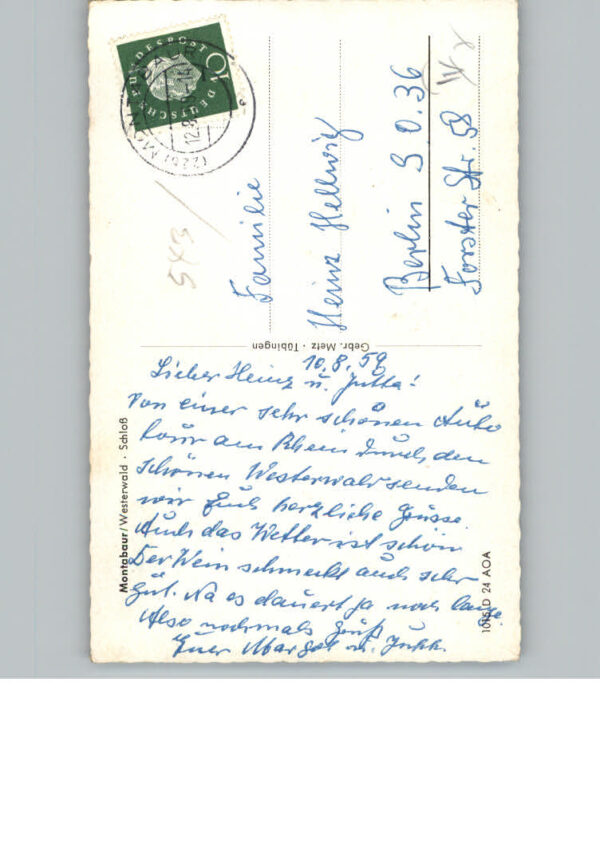 DEUTSCHE BUNDESPOST
10
(22b) MONTABAUR
12.8.59-14
543
Familie
Heinz Hellwig
Berlin S O. 36
Forster Str. 58
Gebr. Metz · Tübingen
10.8.59
Lieber Heinz u. Jutta!
Von einer sehr schönen Auto
tour am Rhein durch den
schönen Westerwald senden
wir Euch herzliche Grüsse.
Auch das Wetter ist schön
Der Wein schmeckt auch sehr
gut. Na es dauert ja noch lange.
Also nochmals Gruß
Euer Margot u.
Montabaur/Westerwald · Schloß
24 AOA